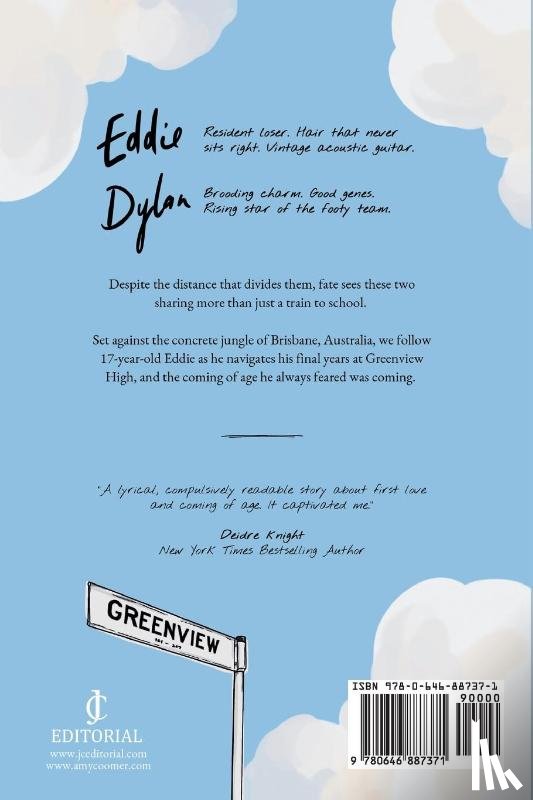 Eddie
Resident loser. Hair that never
sits right. Vintage acoustic guitar.
Dylan
Brooding charm. Good genes.
Rising star of the footy team.
Despite the distance that divides them, fate sees these two
sharing more than just a train to school.
Set against the concrete jungle of Brisbane, Australia, we follow
17-year-old Eddie as he navigates his final years at Greenview
High, and the coming of age he always feared was coming.
"A lyrical, compulsively readable story about first love
and coming of age. It captivated me."
Deidre Knight
New York Times Bestselling Author
GREENVIEW
JC
EDITORIAL
www.jceditorial.com
www.amycoomer.com
ISBN 978-0-646-88737-1
90000
9 780646 887371